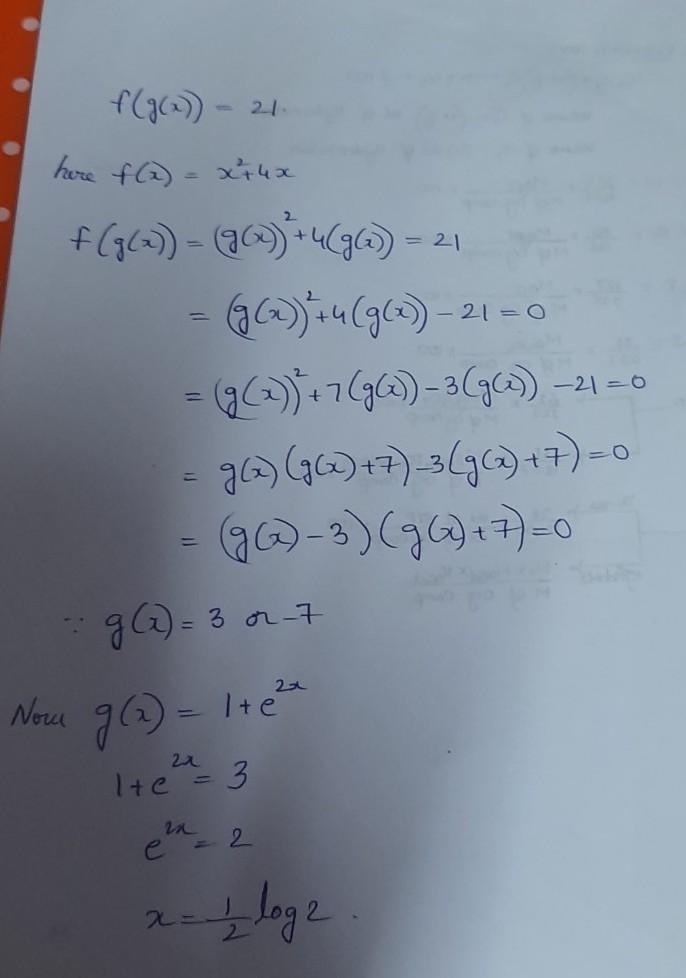 f(g(x)) = 21.
here f(x) = x²+4x
f(g(x)) = (g(x))²+4(g(x)) = 21
= (g(x))²+4(g(x)) - 21 = 0
= (g(x))²+7(g(x)) - 3(g(x)) - 21 = 0
= g(x)(g(x)+7) - 3(g(x)+7) = 0
= (g(x) - 3)(g(x)+7) = 0
∵ g(x) = 3 or -7
Now g(x) = 1+e²ˣ
1+e²ˣ = 3
e²ˣ = 2
x = 1/2 log 2.